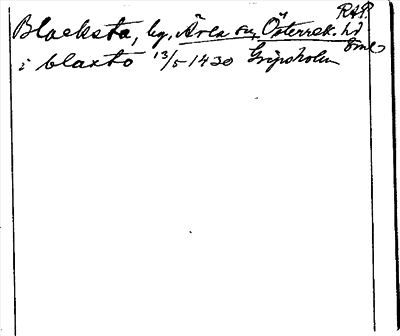 RAP.
Blacksta, by, Ärla sn, Österrek. hd
Sml
i blaxto 13/5 1430 Gripsholm